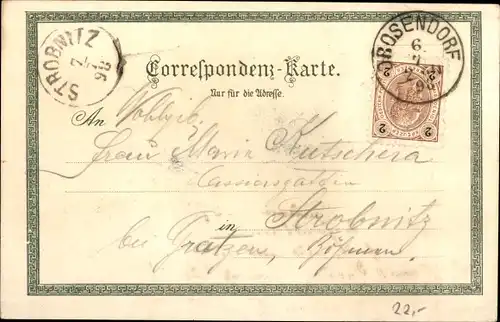 STROBNITZ
7/2
98
DROSENDORF
6
2
2
2
2
Correspondenz-Karte.
Nur für die Adresse.
An Wohlgeb.
Frau Marie Kutschera
in Strobnitz
bei Gratzen, Böhmen
22,-